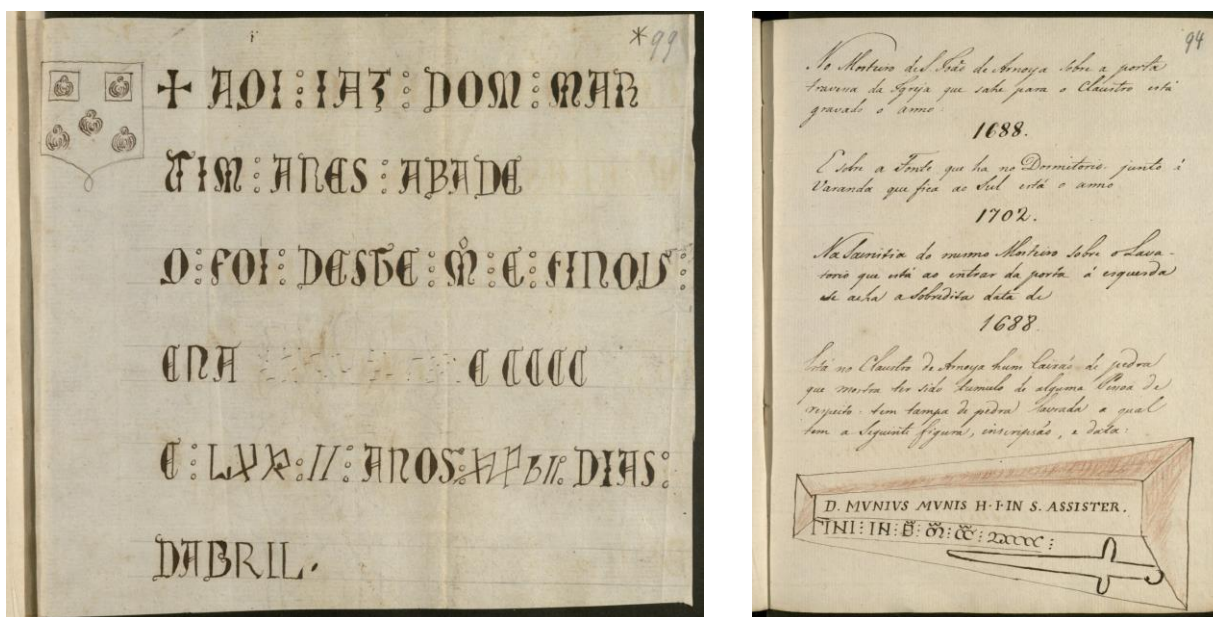 *99
+ AQI : IAZ : DOM : MAR
TIM : ANES : ABADE
Q : FOI : DESTE : M̊ : E : FINOU :
ENA E CCCC
E : LXX : II : ANOS : DIAS :
DABRIL.
94
No Mosteiro de S. João de Arnoya sobre a porta
travessa da Igreja que sahe para o Claustro está
gravado o anno
1688.
E sobre a Fonte que ha no Dormitorio junto á
Varanda que fica ao Sul está o anno
1702.
Na Sacristia do mesmo Mosteiro sobre o Lava-
torio que está ao entrar da porta á esquerda
se acha a sobredita data de
1688.
Está no Claustro de Arnoya hum Caixão de pedra
que mostra ter sido tumulo de alguma Pessoa de
respeito: tem tampa de pedra lavrada a qual
tem a seguinte figura, inscripsão, e data:
D. MVNIVS MVNIS H·I·IN S. ASSISTER.
INI : IN :